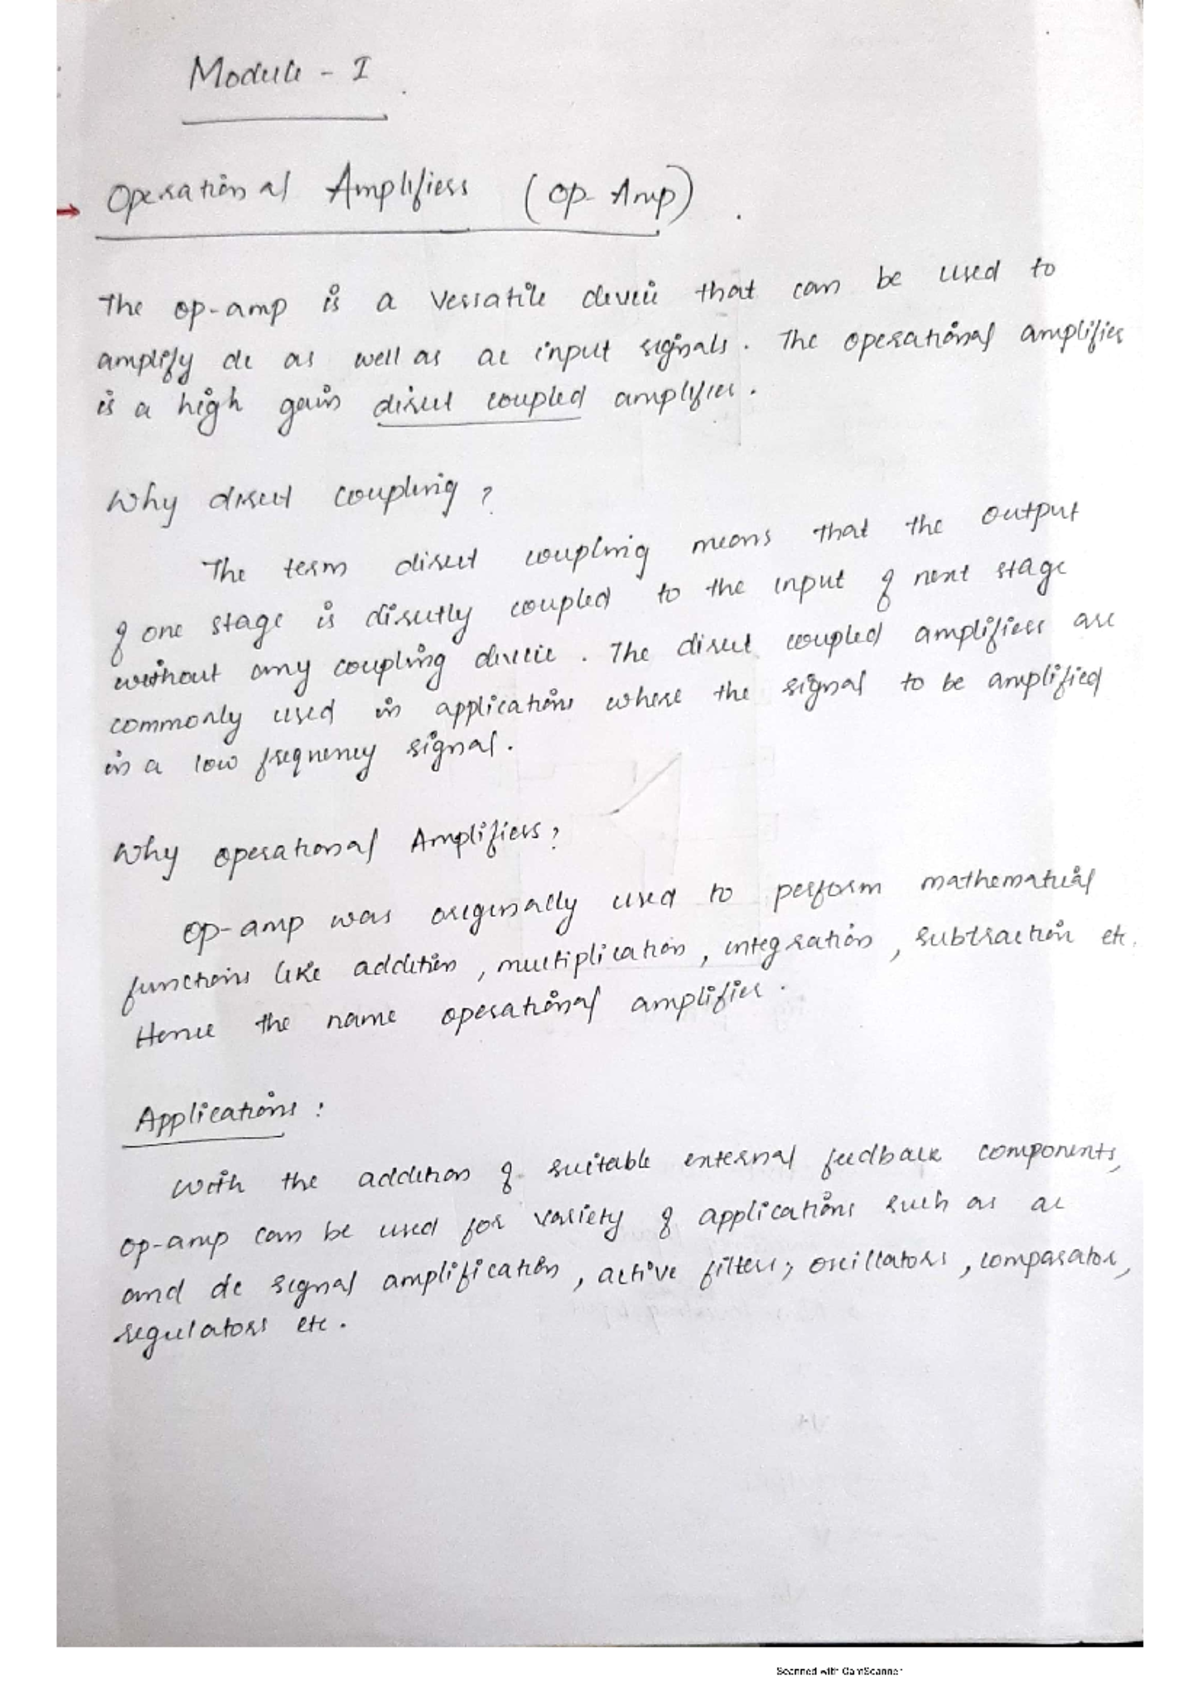 Module - I
Operational Amplifiers (Op-Amp)
The op-amp is a versatile device that can be used to
amplify dc as well as ac input signals. The operational amplifier
is a high gain direct coupled amplifier.
Why direct coupling?
The term direct coupling means that the output
of one stage is directly coupled to the input of next stage
without any coupling device. The direct coupled amplifiers are
commonly used in applications where the signal to be amplified
is a low frequency signal.
Why operational Amplifiers?
Op-amp was originally used to perform mathematical
functions like addition, multiplication, integration, subtraction etc.
Hence the name operational amplifier.
Applications:
With the addition of suitable external feedback components,
op-amp can be used for variety of applications such as ac
and dc signal amplification, active filters, oscillators, comparator,
regulators etc.
Scanned with CamScanner